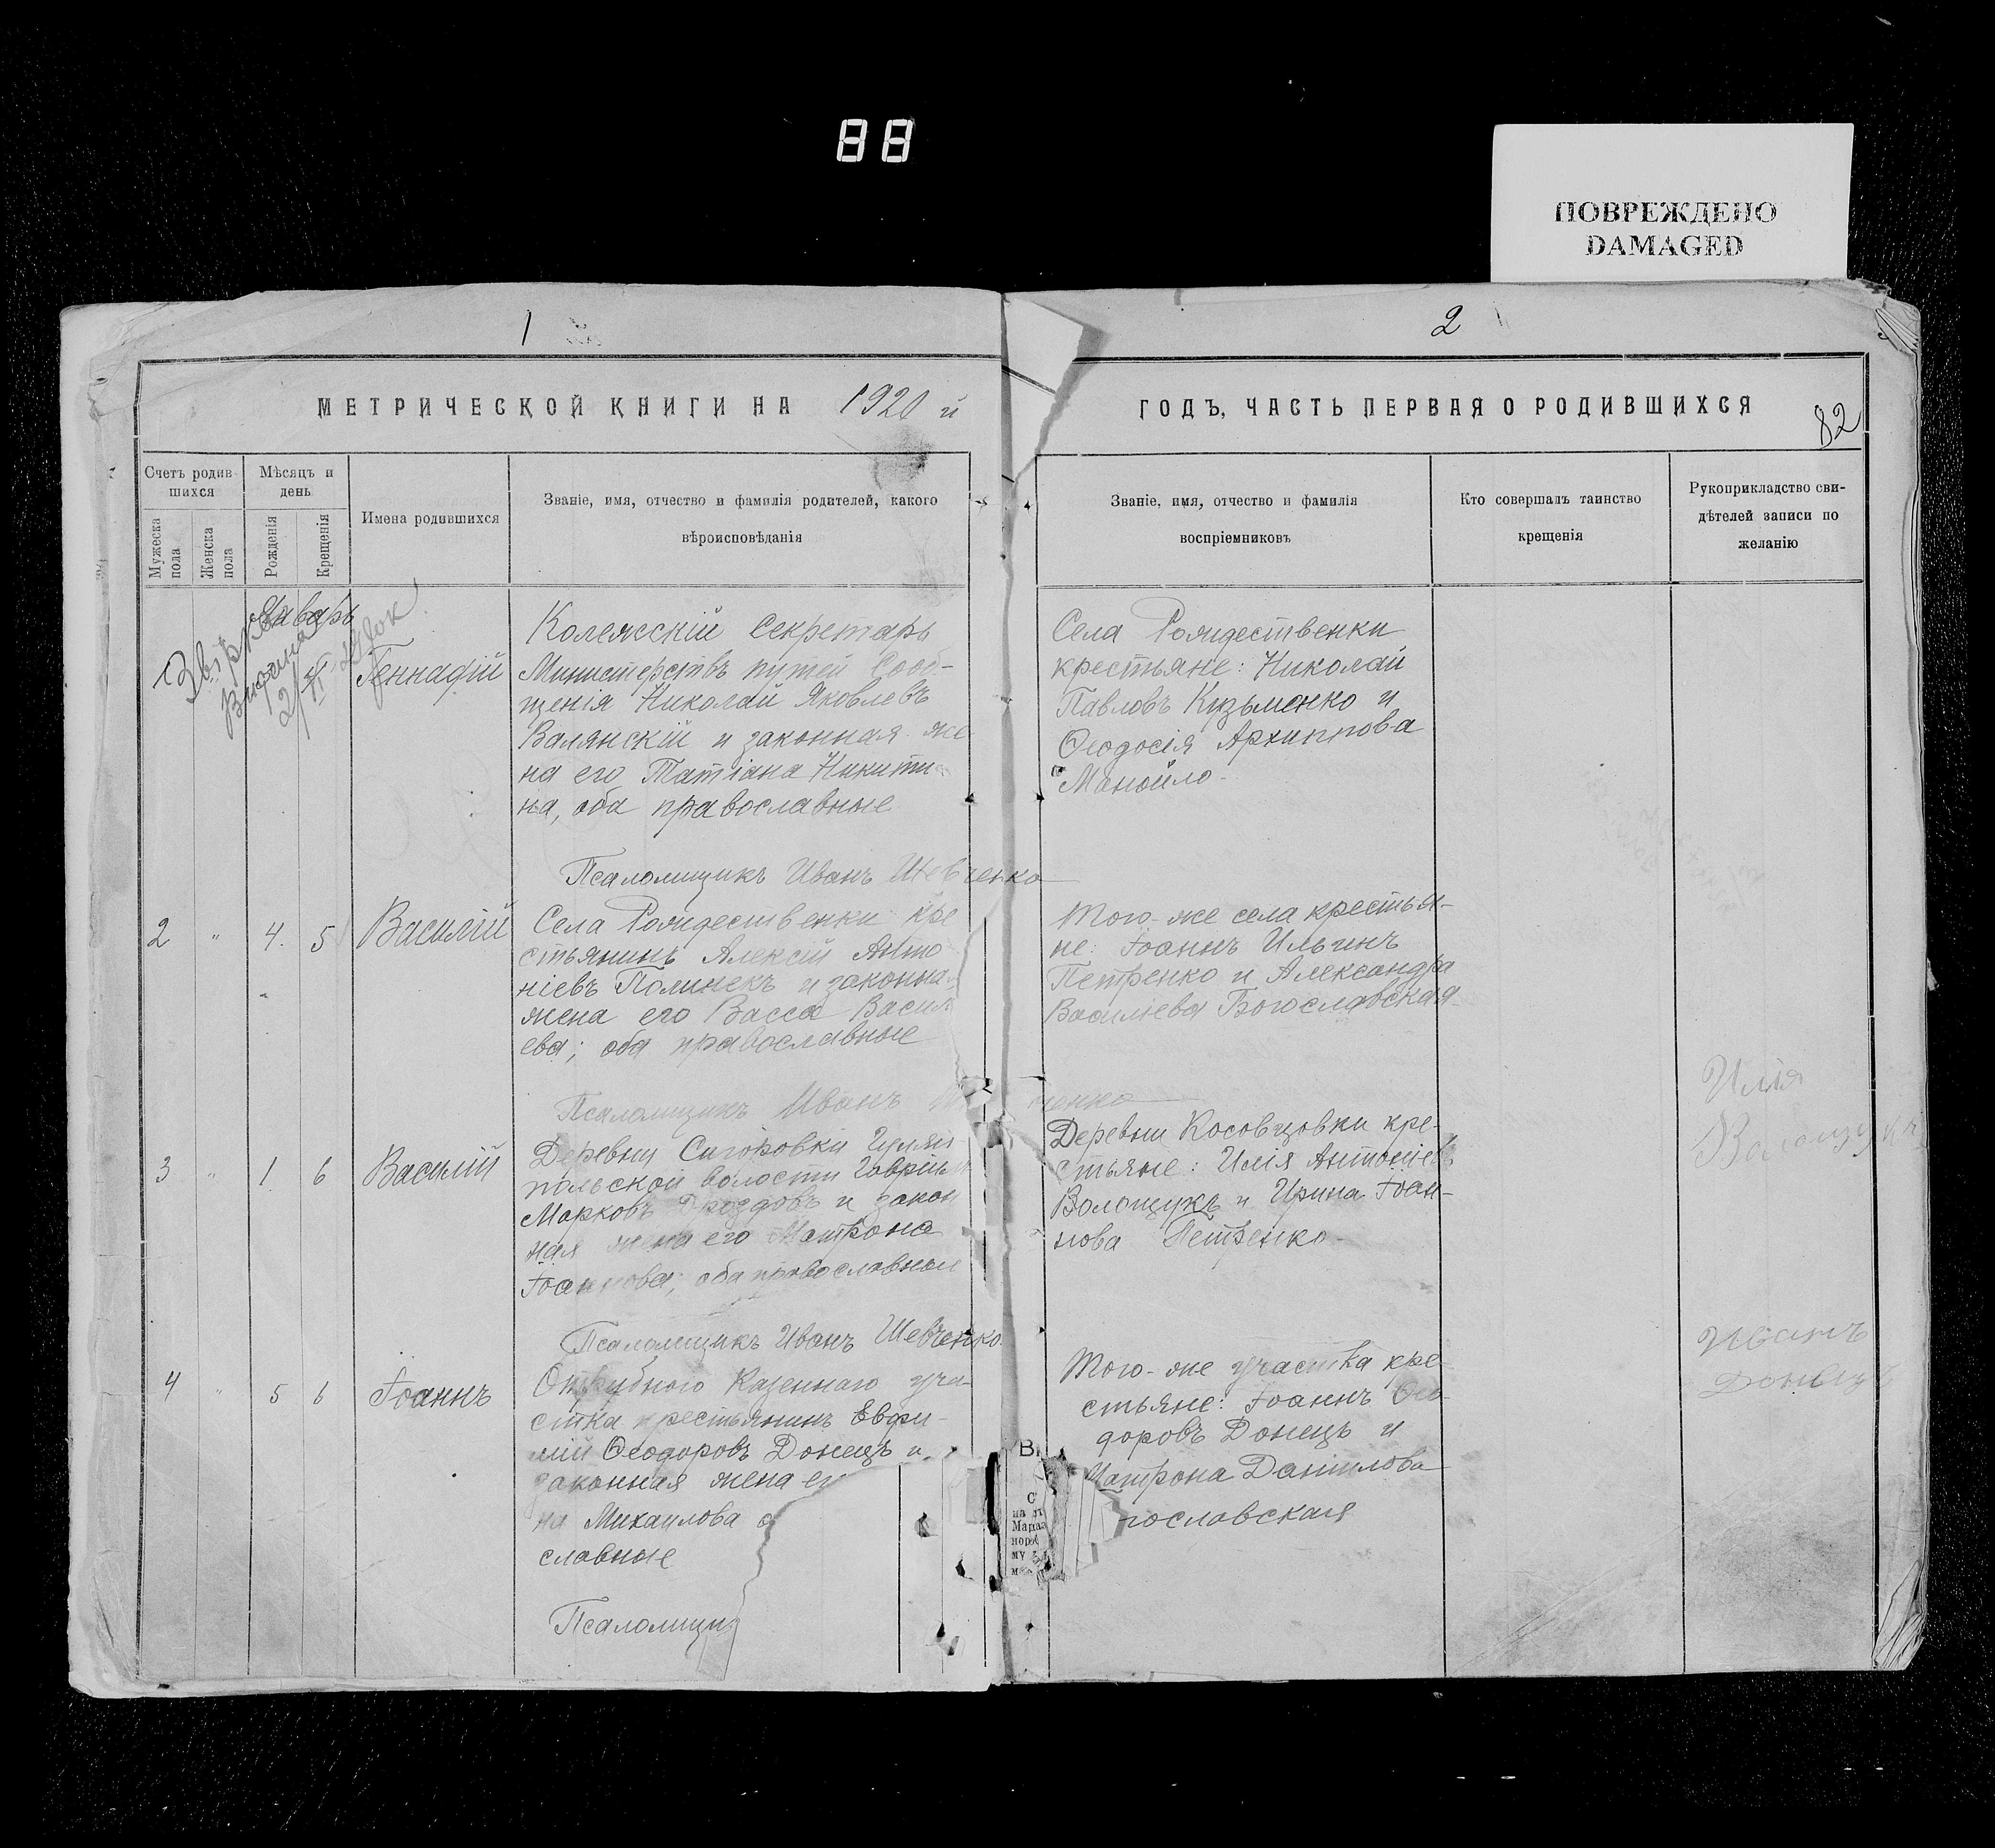 88
ПОВРЕЖДЕНО
DAMAGED
1
2
МЕТРИЧЕСКОЙ КНИГИ НА 1920 й
ГОДЪ, ЧАСТЬ ПЕРВАЯ О РОДИВШИХСЯ
82
Счетъ родив-
шихся
Мужеска
пола
Женска
пола
Мѣсяцъ и
день
Рожденія
Крещенія
Имена родившихся
Званіе, имя, отчество и фамилія родителей, какого
вѣроисповѣданія
Званіе, имя, отчество и фамилія
воспріемниковъ
Кто совершалъ таинство
крещенія
Рукоприкладство сви-
дѣтелей записи по
желанію
Январь
1
Геннадій
Колежсскій Секретарь
Министерствъ путей Сооб-
щенія Николай Яковлевъ
Валянскій и законная же
на его Татіана Никити
на, оба православные
Псаломщикъ Иванъ Шевченко
Села Рождественки
крестьяне: Николай
Павловъ Кузьменко и
Ѳеодосія Архиппова
Манойло
2 " 4. 5 Василій
Села Рождественки кре
стьянинъ Алексій Анто
ніевъ Полинекъ и законна
жена его Васса Васил
ева; оба православные
Псаломщикъ Иванъ
ченко
Того-же села крестья-
не: Іоаннъ Ильинъ
Петренко и Александра
Василіева Богославская
3 " 1 6 Василій
Деревни
польской волости Гавріилъ
Марковъ Дроздовъ и закон
ная жена его Матрона
Іоаннова; оба православные
Псаломщикъ Иванъ Шевченко.
Деревни Косовцовки кре-
стьяне: Илія Антоніевъ
Волощукъ и Ирина Іоан-
нова Петренко
Илія
Волощукъ
4 " 5 6 Іоаннъ
Отрубного Казеннаго уча-
стка крестьянинъ Евфи-
мій Ѳеодоровъ Донецъ и
законная жена ег
на Михаилова о
славные
Псаломщи
Того-же участка кре
стьяне: Іоаннъ Ѳео-
доровъ Донецъ и
Матрона Даніилова
гославская
Иванъ
Донецъ